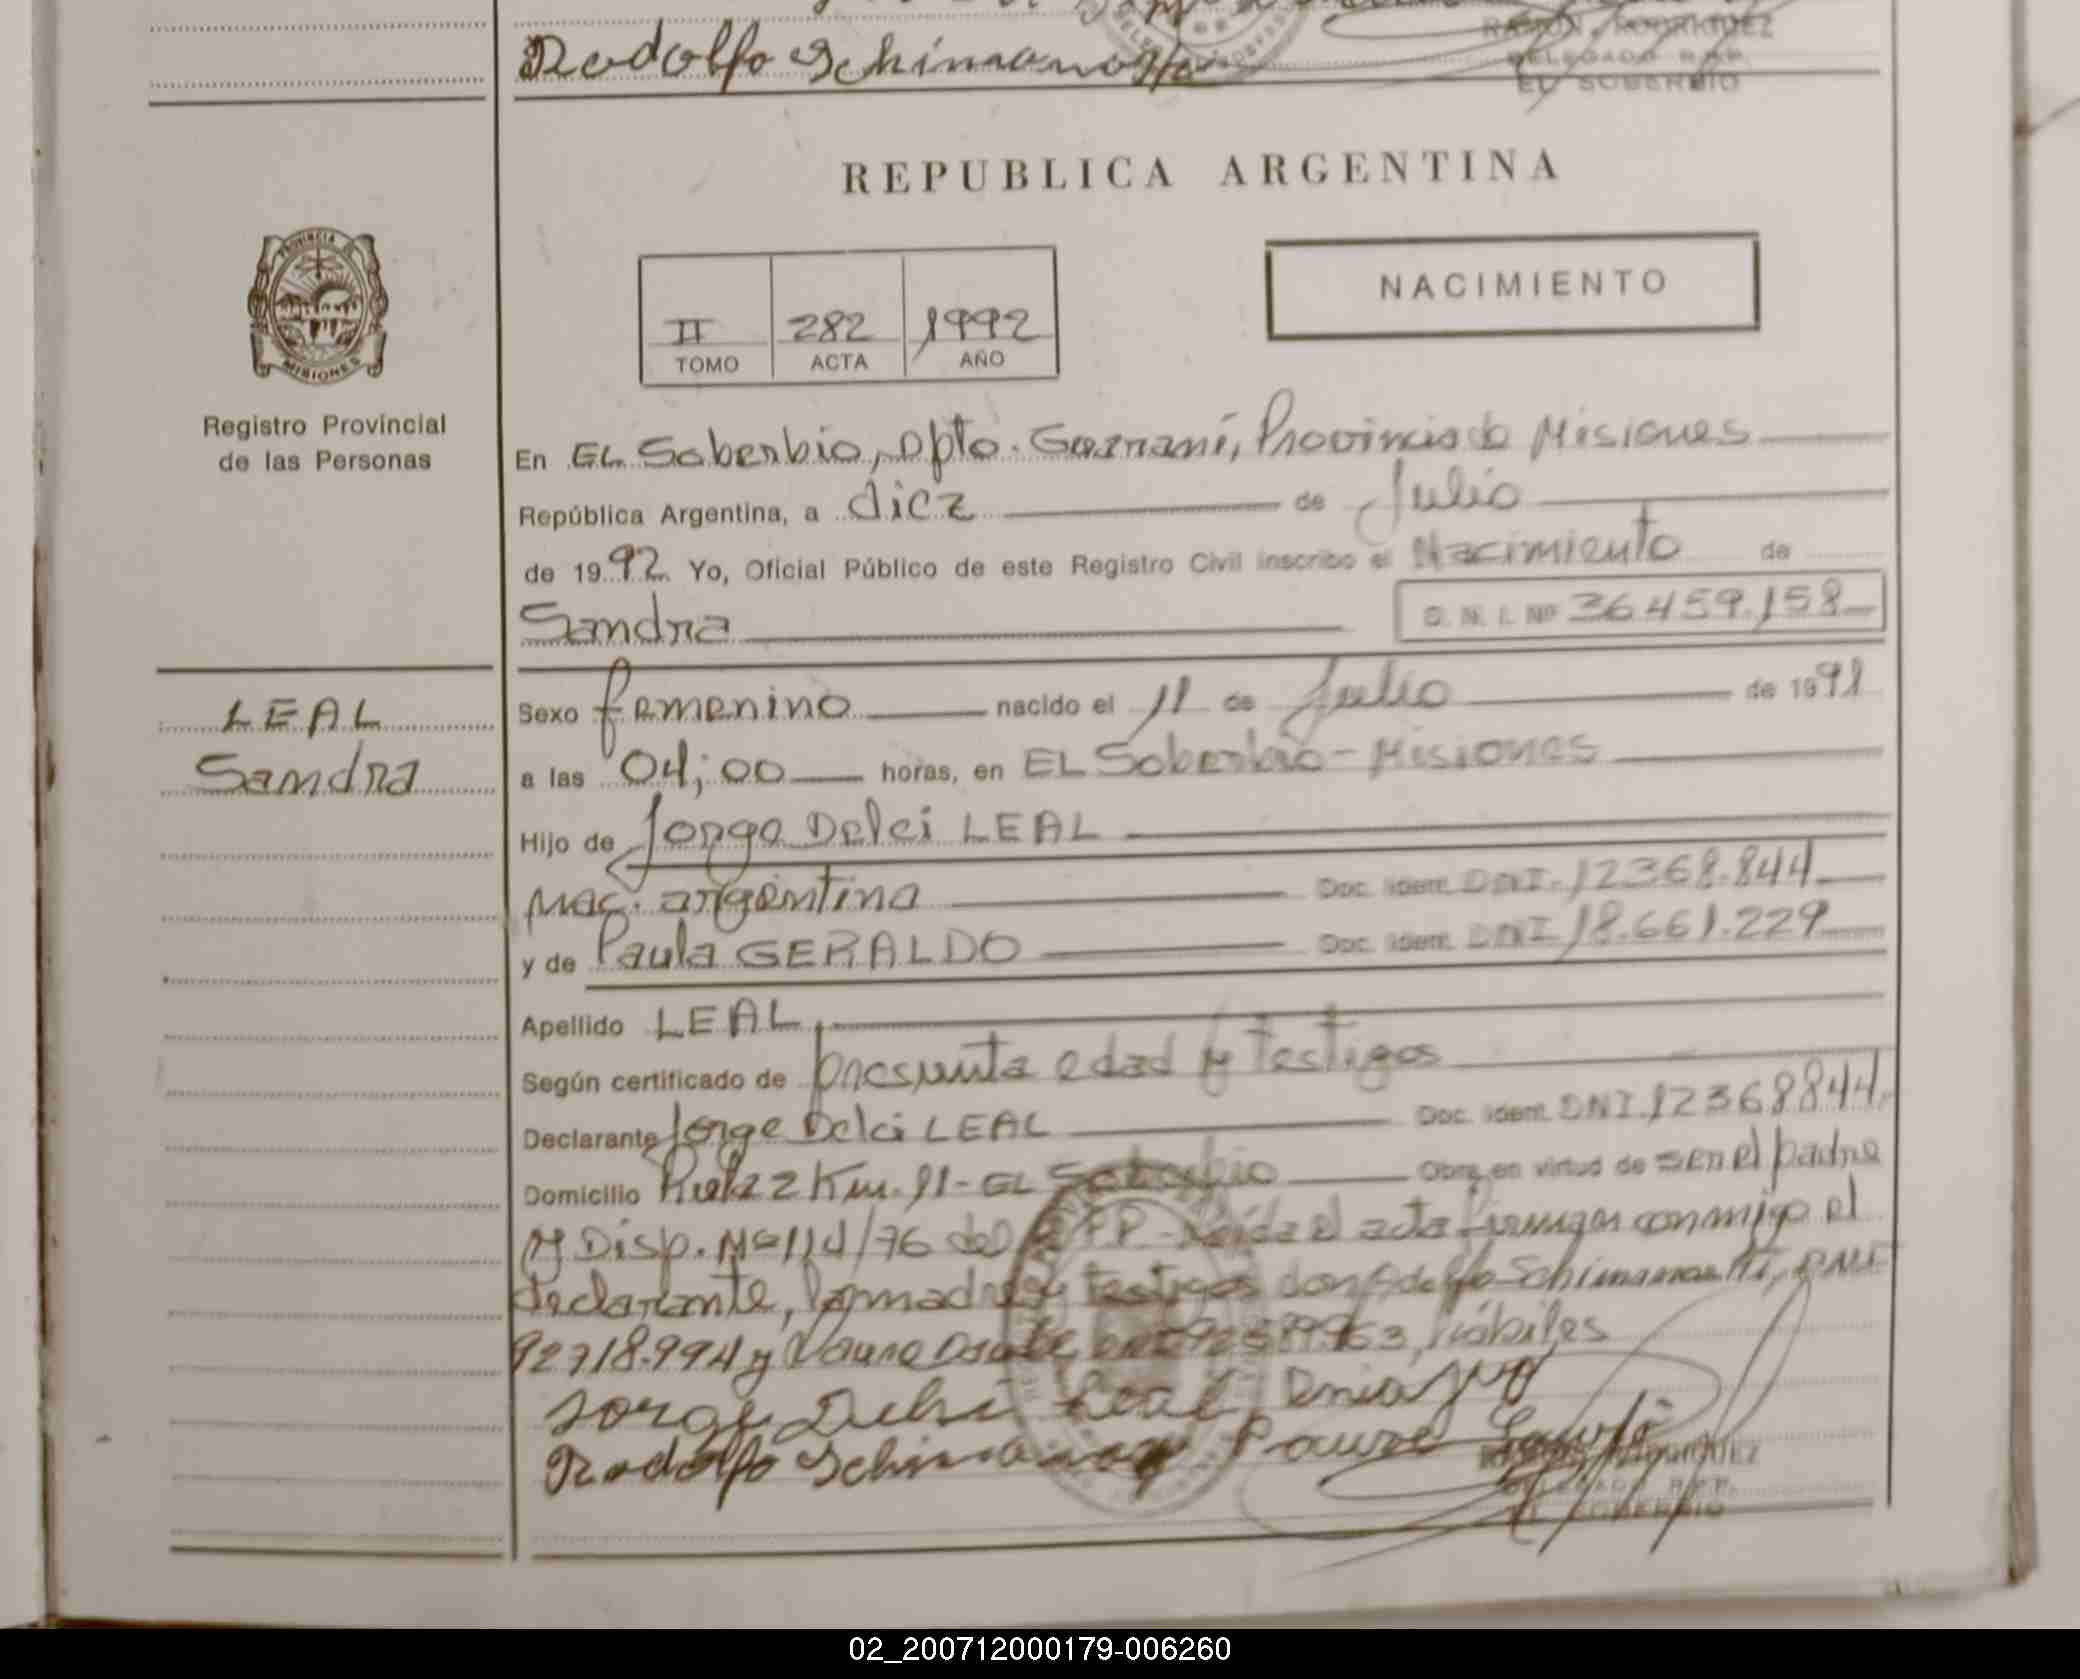 Rodolfo Schimanosk
RAMON RODRIGUEZ
DELEGADO R.P.P.
EL SOBERBIO
REPUBLICA ARGENTINA
PROVINCIA DE
MISIONES
Registro Provincial
de las Personas
II 282 1992
TOMO ACTA AÑO
NACIMIENTO
En EL Soberbio, Dpto. Guaraní, Provincia de Misiones
República Argentina, a diez de Julio
de 1992 Yo, Oficial Público de este Registro Civil inscribo el Nacimiento de
Sandra D. N. I. Nº 36.459.158
LEAL
Sandra
Sexo femenino nacido el 11 de Julio de 1991
a las 04;00 horas, en EL Soberbio - Misiones
Hijo de Jorge Delci LEAL
Nac. argentina Doc. Ident. DNI. 12368.844
y de Paula GERALDO Doc. Ident. DNI 18.661.229
Apellido LEAL
Según certificado de presunta edad y testigos
Declarante Jorge Delci LEAL Doc. Ident. DNI. 12368844
Domicilio Ruta 2 Km. 91 - EL Soberbio Obra en virtud de ser el padre
y Disp. Nº 114/76 del R.P.P. Leída el acta firman conmigo el
declarante, la madre y testigos don
92718.994 y hábiles
Jorge Delci Leal
Rodolfo
RODRIGUEZ
DELEGADO R.P.P.
EL SOBERBIO
02_200712000179-006260